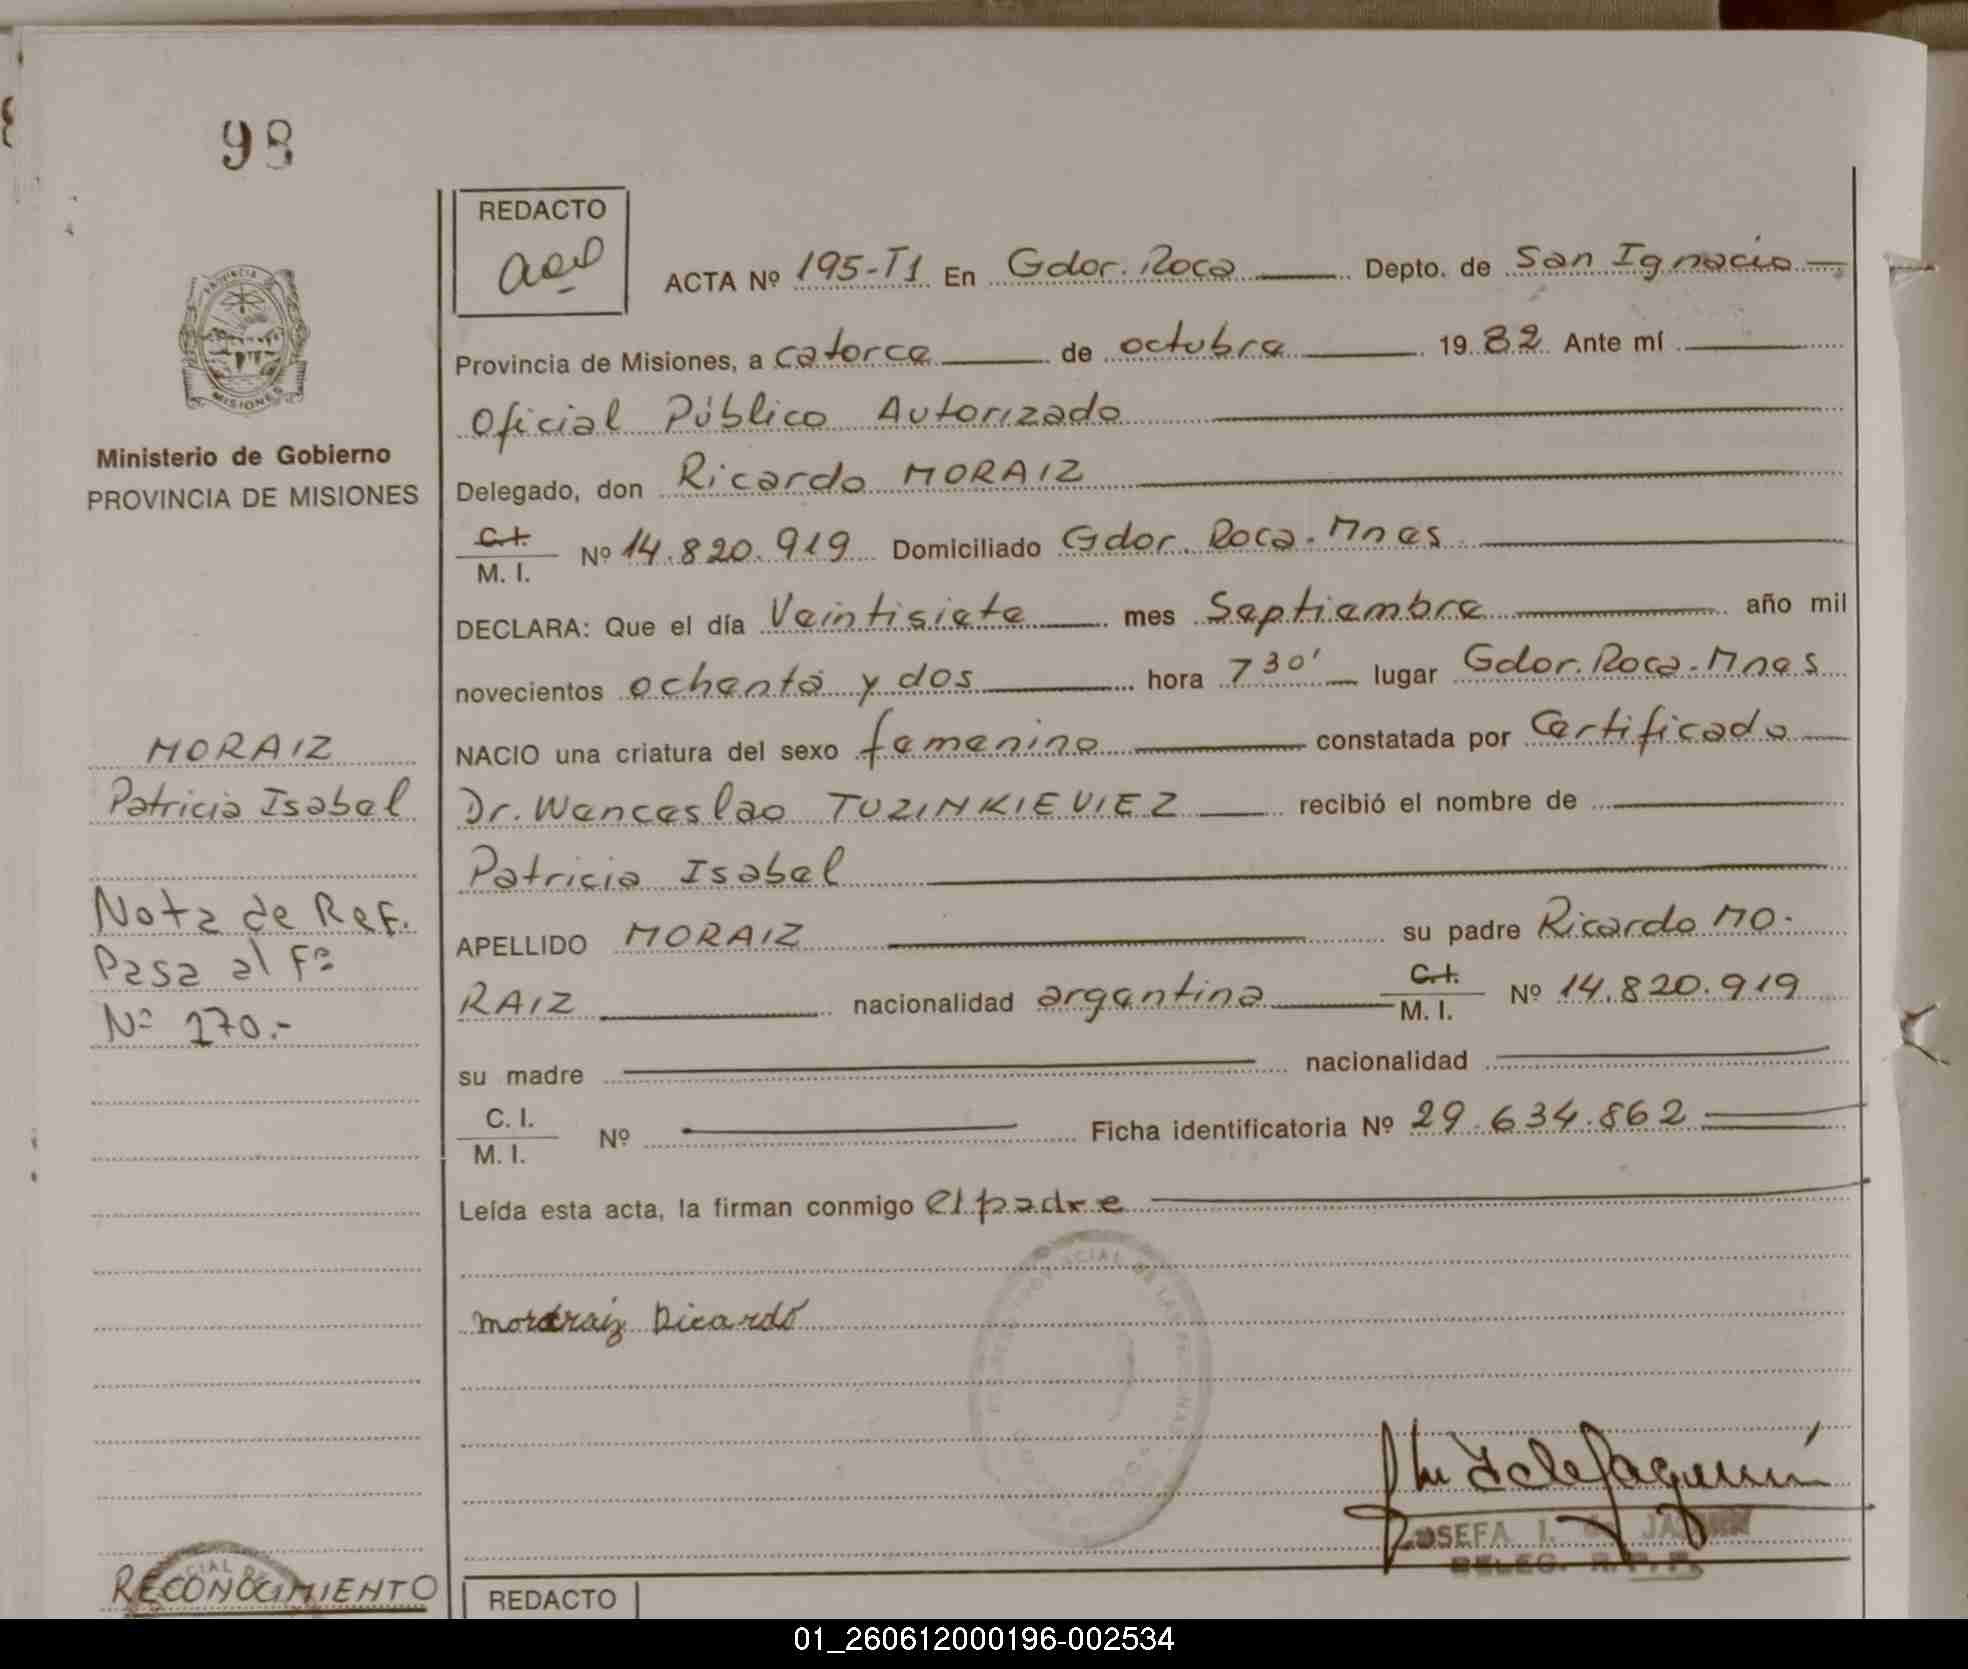 98
REDACTO
ACTA Nº 195-T1 En Gdor. Roca Depto. de San Ignacio
PROVINCIA
MISIONES
Provincia de Misiones, a catorce de octubre 1982 Ante mí
Oficial Público Autorizado
Ministerio de Gobierno
PROVINCIA DE MISIONES
Delegado, don Ricardo MORAIZ
C.I.
M. I. Nº 14.820.919 Domiciliado Gdor. Roca. Mnes
DECLARA: Que el día Veintisiete mes Septiembre año mil
novecientos ochenta y dos hora 7 30' lugar Gdor. Roca. Mnes
NACIO una criatura del sexo femenino constatada por Certificado
Dr. Wenceslao TUZINKIEVIEZ recibió el nombre de
Patricia Isabel
APELLIDO MORAIZ su padre Ricardo MO.
RAIZ nacionalidad argentina C.I. M. I. Nº 14.820.919
su madre nacionalidad
C. I.
M. I. Nº Ficha identificatoria Nº 29.634.862
Leída esta acta, la firman conmigo el padre
MORAIZ
Patricia Isabel
Nota de Ref.
Pasa al Fº
Nº 170.-
Ricardo
JOSEFA I. de
DELEG.
RECONOCIMIENTO
REDACTO
01_260612000196-002534